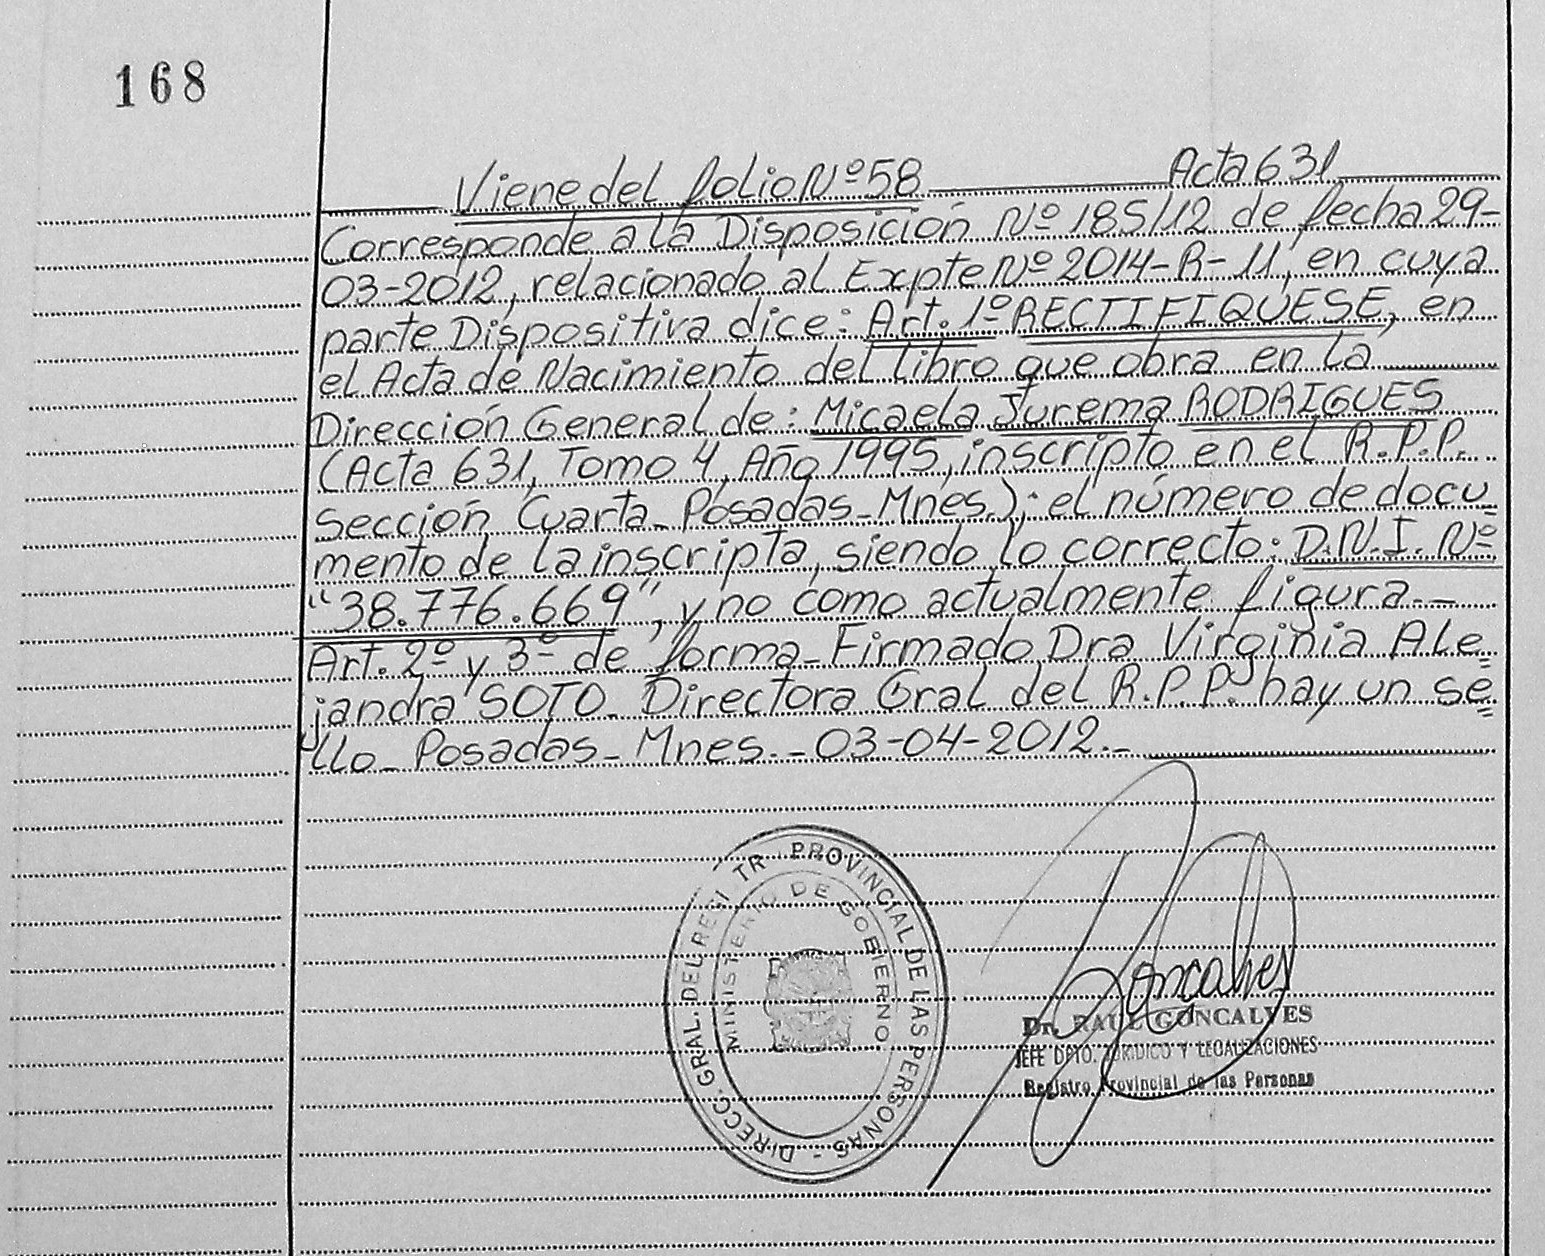 168
Viene del folio Nº 58 Acta 631
Corresponde a la Disposición Nº 185/12 de fecha 29-
03-2012, relacionado al Expte Nº 2014-R-11, en cuya
parte Dispositiva dice: Art. 1º RECTIFIQUESE, en
el Acta de Nacimiento del libro que obra en la
Dirección General de: Micaela Jurema RODRIGUES
(Acta 631, Tomo 4, Año 1995, inscripto en el R.P.P.
Sección Cuarta_ Posadas_Mnes.); el número de docu_
mento de la inscripta, siendo lo correcto: D.N.I. Nº
"38.776.669", y no como actualmente figura._
Art. 2º y 3º de forma_ Firmado Dra Virginia Ale=
jandra SOTO_ Directora Gral del R.P.P. hay un se=
llo_ Posadas_ Mnes._ 03-04-2012._
DIRECC. GRAL. DEL REGI TR PROVINCIAL DE LAS PERSONAS -
MINISTERIO DE GOBIERNO
Goncalves
Dr. RAUL GONCALVES
JEFE DPTO. JURIDICO Y LEGALIZACIONES
Registro Provincial de las Personas